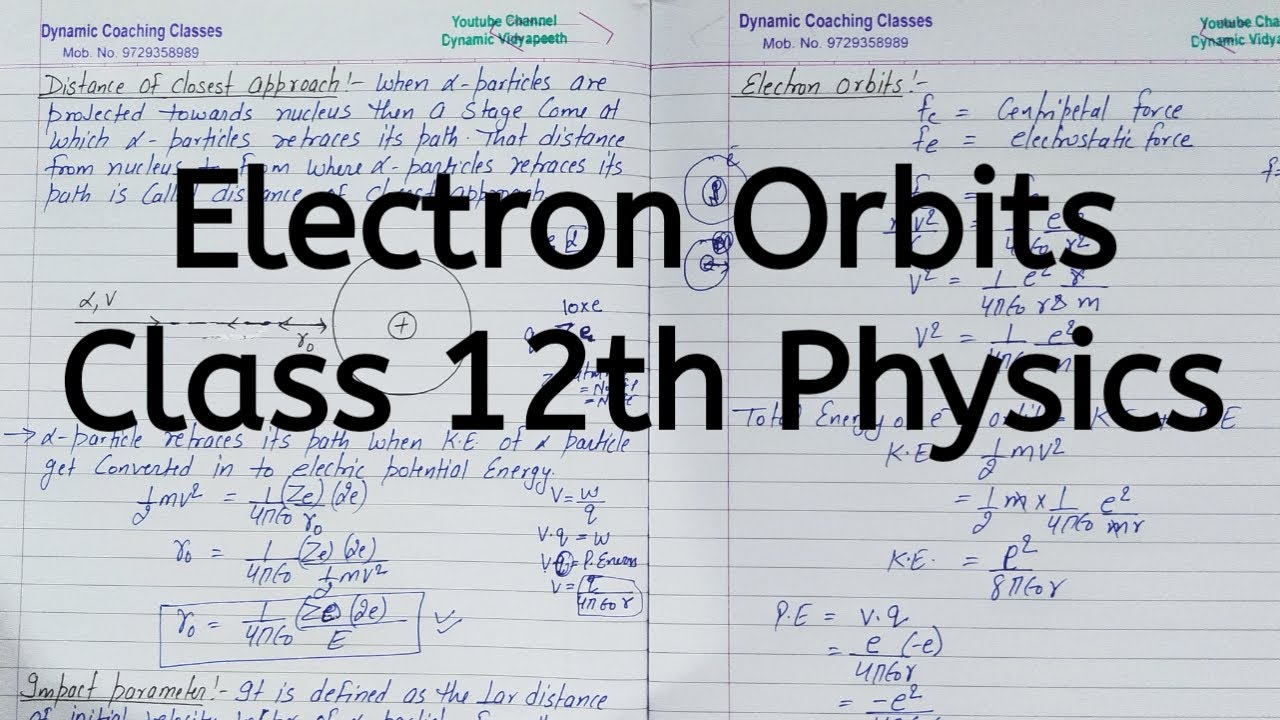 Dynamic Coaching Classes
Mob. No. 9729358989
Youtube Channel
Dynamic Vidyapeeth
Distance of closest approach!- when α-particles are
projected towards nucleus then a stage come at
which α-particles retraces its path. That distance
from nucleus from where α-particles retraces its
path is called distance of closest approach
α, V
r₀
+
10xe
→ α-particle retraces its path when K.E. of α particle
get converted in to electric potential Energy.
1/2 mv² = 1/4π€₀ (Ze)(2e)/r₀
r₀ = 1/4π€₀ (Ze)(2e)/1/2 mv²
r₀ = 1/4π€₀ (Ze)(2e)/E
V = w/q
V.q = w
V.q = P.Energy
V = q/4π€₀r
Impact parameter!- It is defined as the ⊥ar distance
of initial velocity vector of α
Dynamic Coaching Classes
Mob. No. 9729358989
Youtube Cha
Dynamic Vidya
Electron Orbits!-
fc = Centripetal force
fe = electrostatic force
V² = 1/4π€₀ e²/r² r/m
V² = 1/4π€₀ e²/m
Total Energy of e K P.E
K.E 1/2 mv²
= 1/2 m x 1/4π€₀ e²/mr
K.E. = e²/8π€₀r
P.E = V.q
= e (-e)/4π€₀r
= -e²
Electron Orbits
Class 12th Physics